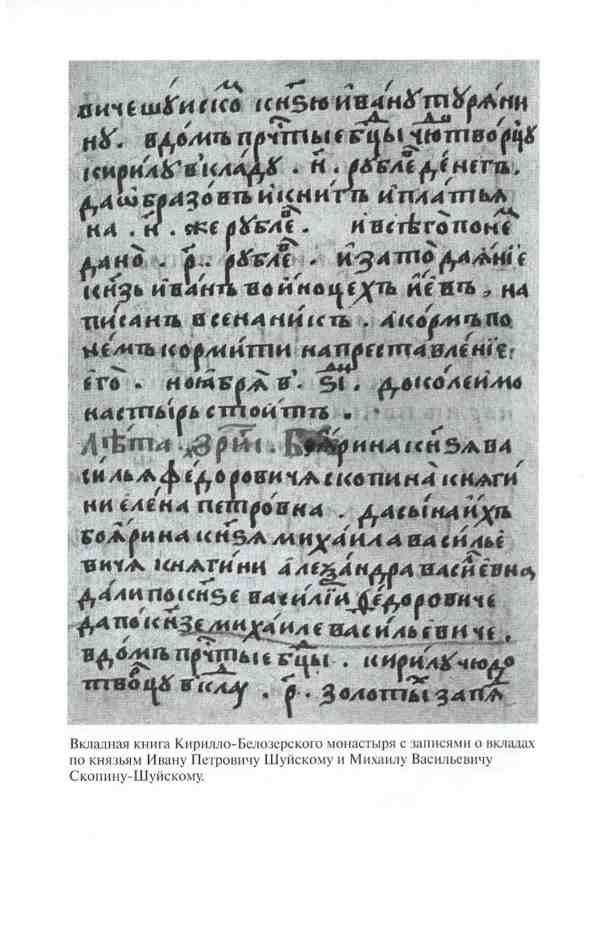 вичешуискѡ҃ кнѕю иванутурѧни
ну. вдомъ прчⷭтые бцы чюⷣтворцу
кирилу вкладу. н҃. рублеⷡ҇ денегъ.
даѡбразовъ икнигъ иплатьѧ
на. н҃. же рублеⷡ҇. ивсѣгопонеⷨ
дано. р҃. рублеⷡ҇. изатодаѧнїе
кнѕь иванъ воиноцехъ иевъ, на
писанъ всенаникъ. акормъпо
немъ кормити напреставленїе
его. ноѧбрѧ в҃. ѕі. доколеимо
настырь стоитъ.
лѣта ҂зриі. боѧринакнѕѧва
сильѧ федоровичѧскопина кнѧги
ни елена петровна. дасынаихъ
боѧрина кнѕѧ михаила василье
вичѧ кнѧгини алеѯандра васиⷧевна
далипокнѕе василїи федоровиче
дапокнѕе михаиле васильевиче.
вдомъ прчⷭтые бцы. кирилучюдо
твоⷬцу вклаⷣ. р҃. золотыⷯ запⷧѧ
Вкладная книга Кирилло-Белозерского монастыря с записями о вкладах
по князьям Ивану Петровичу Шуйскому и Михаилу Васильевичу
Скопину-Шуйскому.